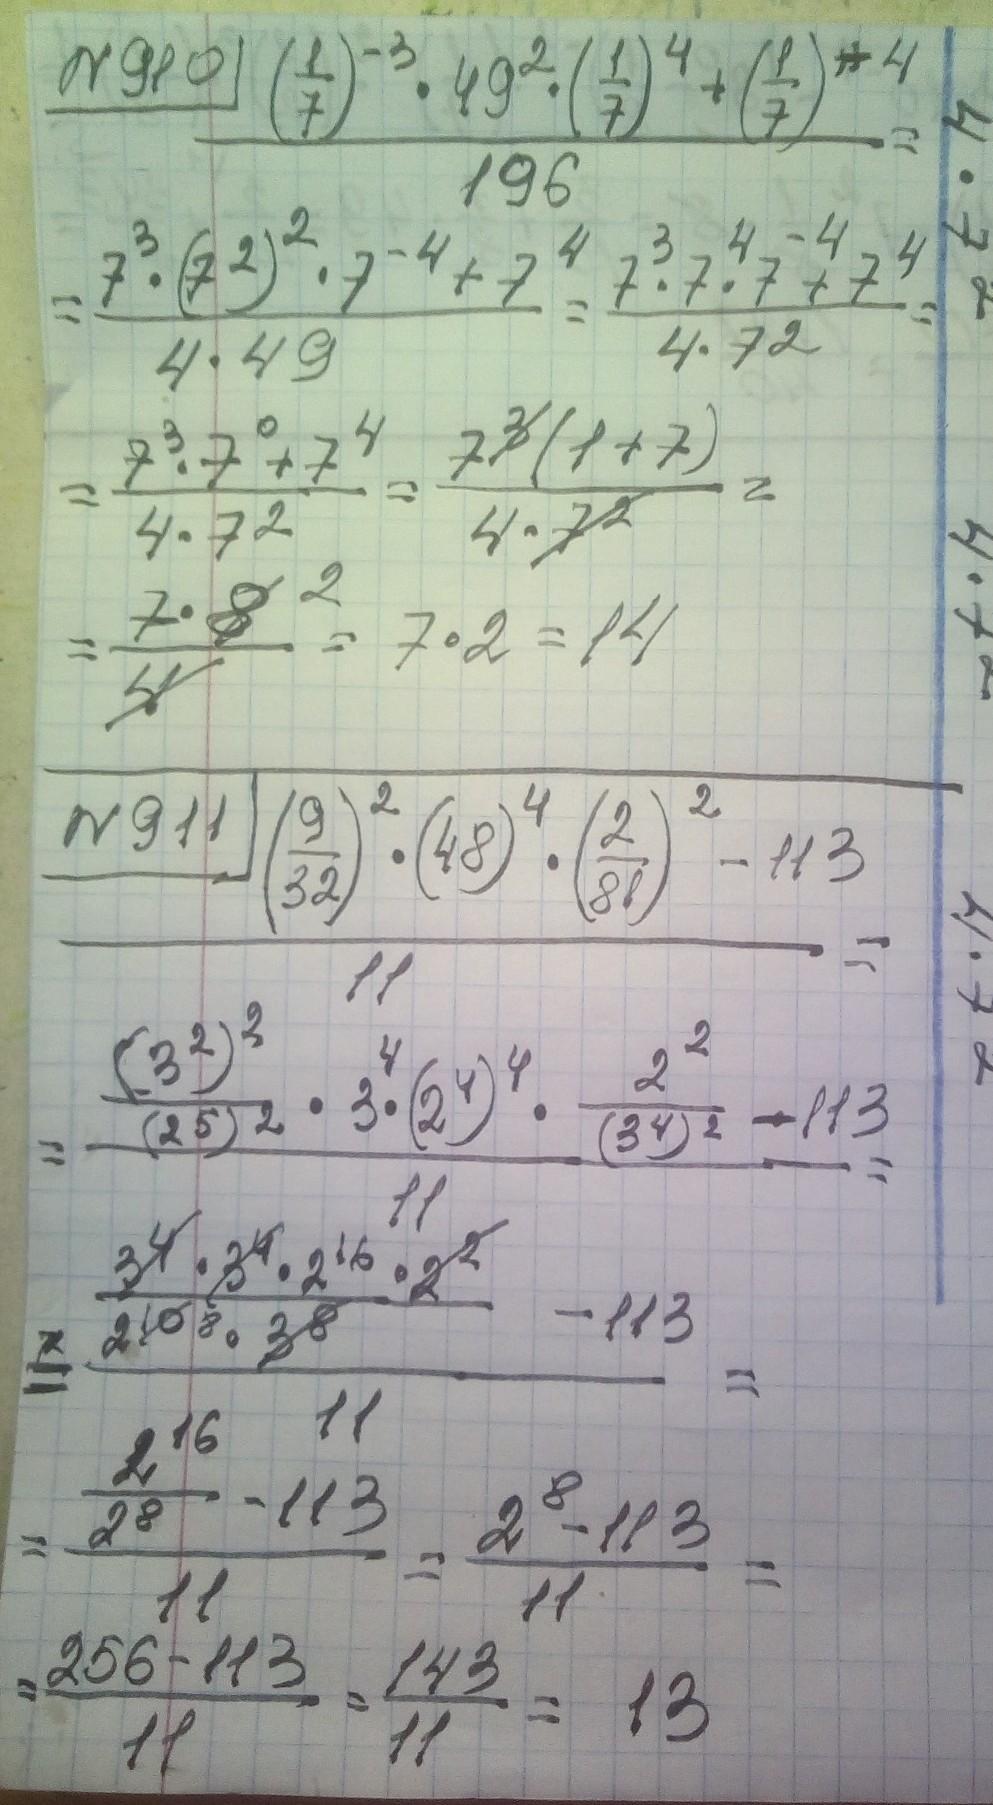 N910 ((1/7)^-3 · 49^2 · (1/7)^4 + (1/7)^-4)/196 =
= (7^3 · (7^2)^2 · 7^-4 + 7^4)/(4 · 49) = (7^3 · 7^4 · 7^-4 + 7^4)/(4 · 7^2) =
= (7^3 · 7^0 + 7^4)/(4 · 7^2) = (7^3 (1 + 7))/(4 · 7^2) =
= (7 · 8 2)/4 = 7 · 2 = 14
N911 ((9/32)^2 · (48)^4 · (2/81)^2 - 113)/11 =
= ((3^2)^2/(2^5)^2 · 3^4 · (2^4)^4 · 2^2/(3^4)^2 - 113)/11 =
= ((3^4 · 3^4 · 2^16 · 2^2)/(2^10 8 · 3^8) - 113)/11 =
= (2^16/2^8 - 113)/11 = (2^8 - 113)/11 =
= (256 - 113)/11 = 143/11 = 13
4 · 7^2
4 · 7^2
4 · 7^2